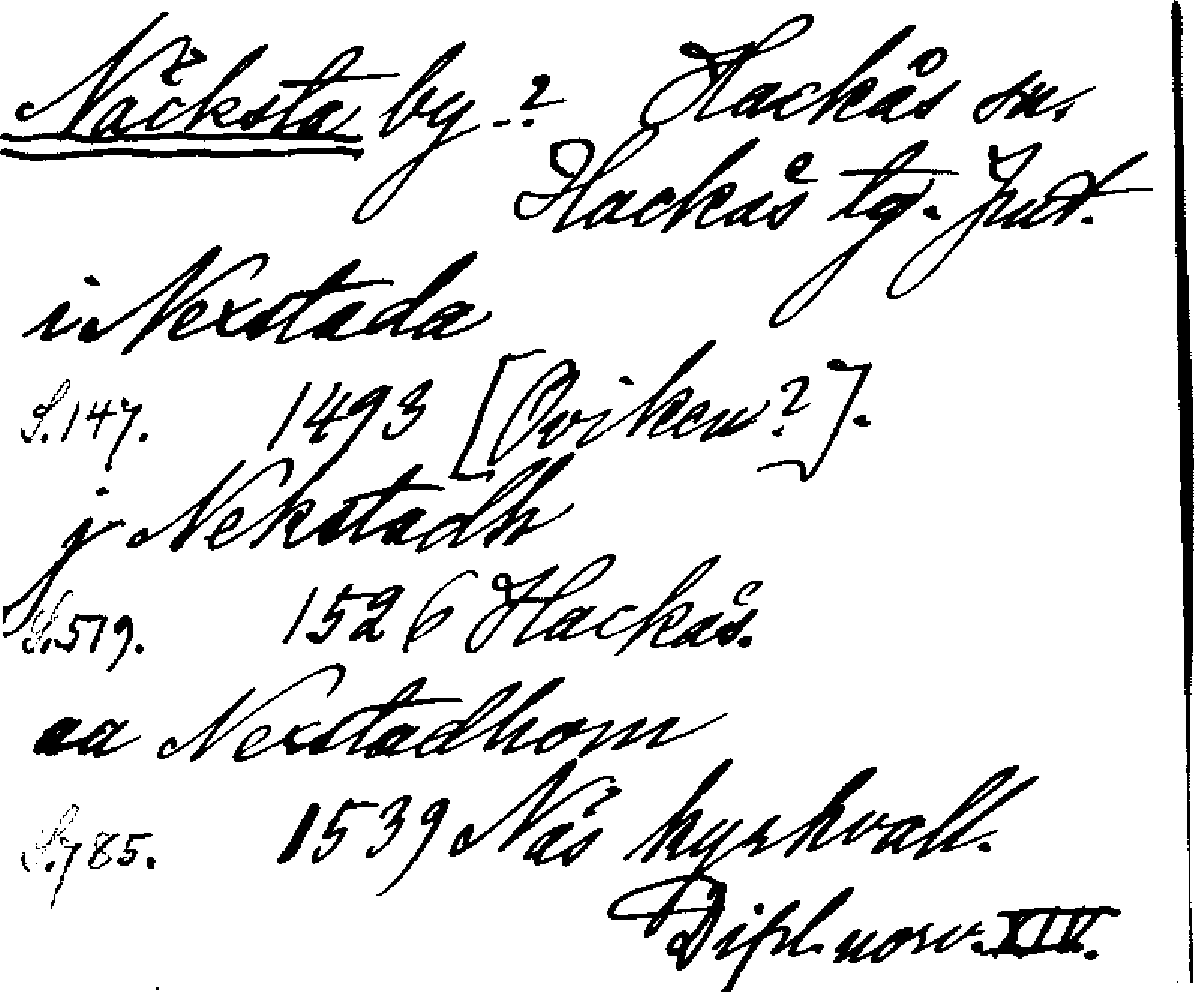 Näcksta by.? Hackås sn.
Hackås tg. Jmt.
i Nexstada
S.147. 1493 [Oviken?].
j Nekstadh
S.519. 1526 Hackås.
aa Nexstadhom
S.785. 1539 Näs kyrkvall.
Dipl. norv. XIV.